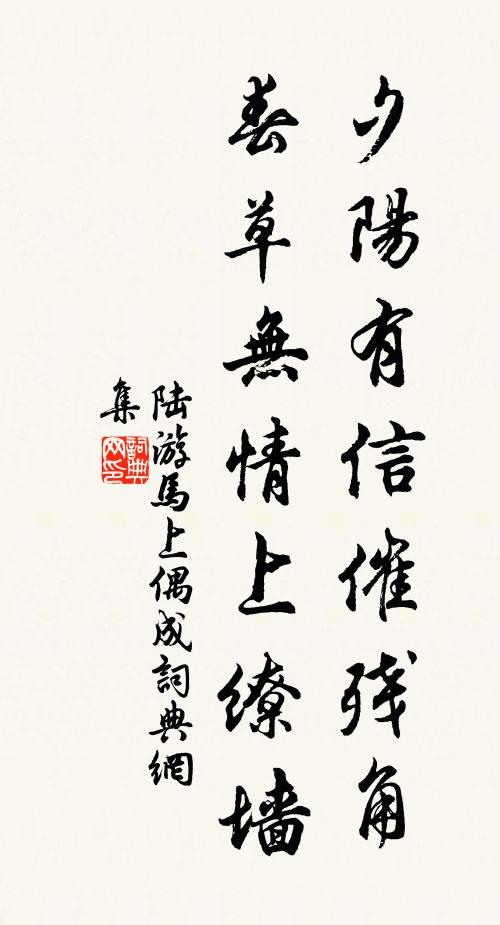 夕陽有信催残角
春草無情上繚墙
陆游馬上偶成詞典網
集
詞典网印